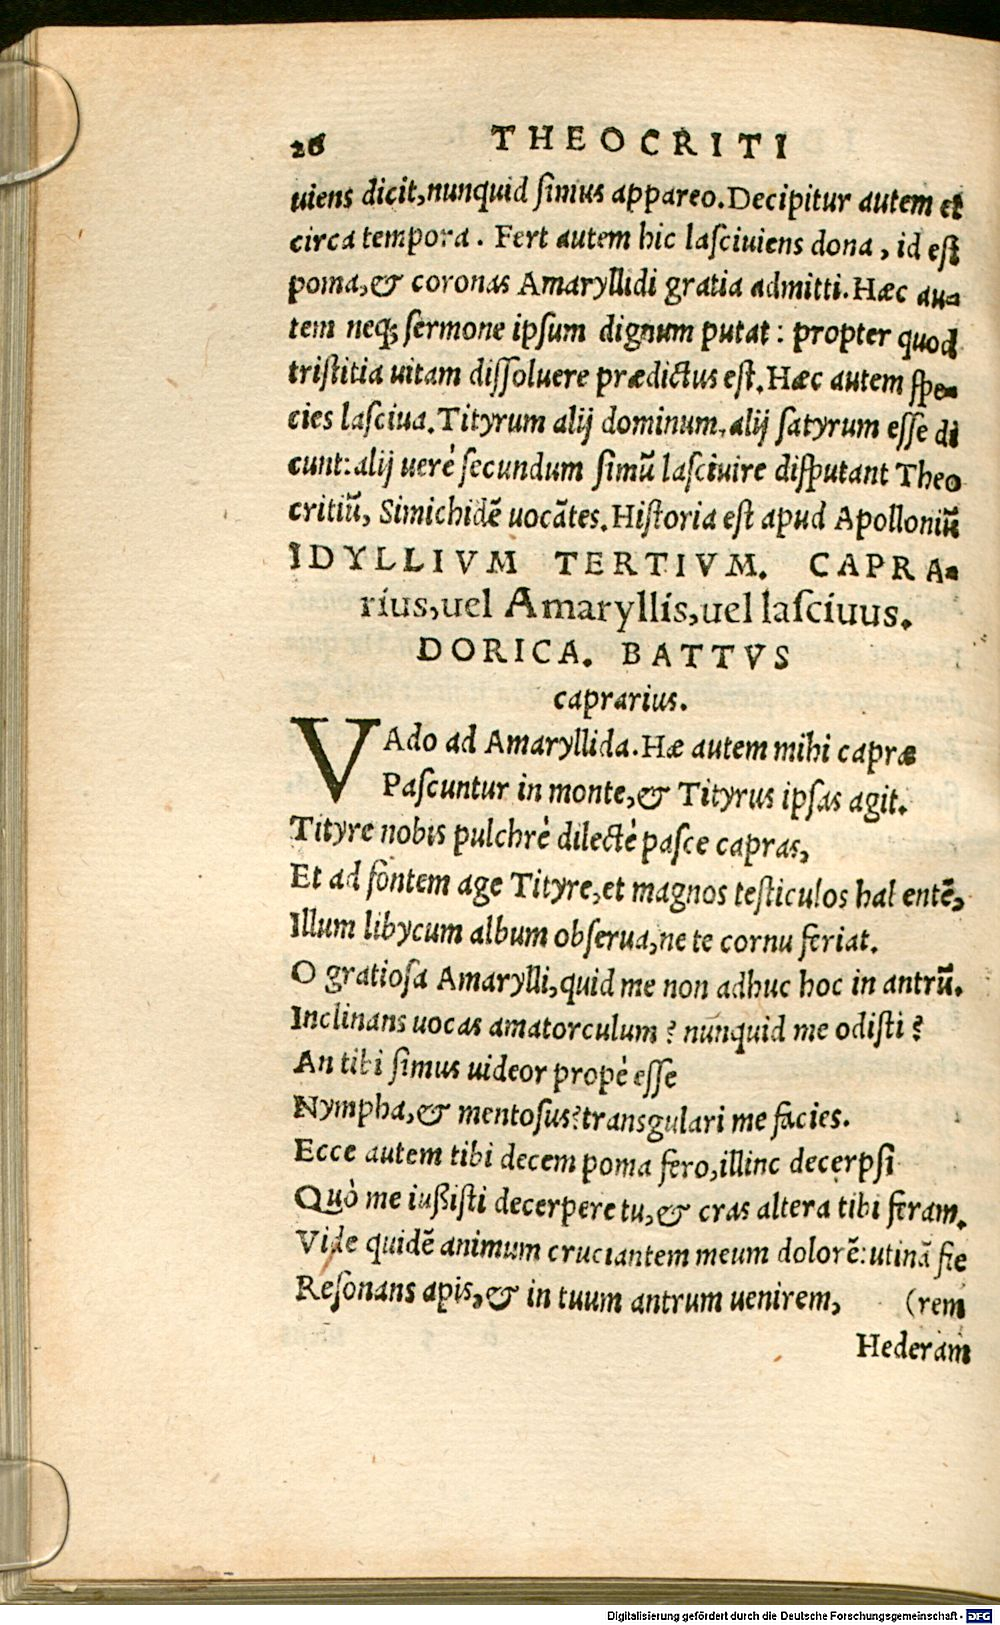 26 THEOCRITI
uiens dicit, nunquid ſimus appareo. Decipitur autem et
circa tempora. Fert autem hic laſciuiens dona, id eſt
poma, & coronas Amaryllidi gratia admitti. Hæc au-
tem neq; ſermone ipſum dignum putat: propter quod
triſtitia uitam diſſoluere prædictus eſt. Hæc autem ſpe-
cies laſciua. Tityrum alij dominum, alij ſatyrum eſſe di
cunt: alij uerè ſecundum ſimū laſciuire diſputant Theo
critiū, Simichidē uocātes. Hiſtoria eſt apud Apolloniū
IDYLLIVM TERTIVM. CAPRA-
rius, uel Amaryllis, uel laſciuus.
DORICA. BATTVS
caprarius.
VAdo ad Amaryllida. Hæ autem mihi capræ
Paſcuntur in monte, & Tityrus ipſas agit.
Tityre nobis pulchrè dilectè paſce capras,
Et ad fontem age Tityre, et magnos teſticulos hal entē,
Illum libycum album obſerua, ne te cornu feriat.
O gratioſa Amarylli, quid me non adhuc hoc in antrū.
Inclinans uocas amatorculum? nunquid me odiſti?
An tibi ſimus uideor propè eſſe
Nympha, & mentoſus? transgulari me facies.
Ecce autem tibi decem poma fero, illinc decerpſi
Quò me iußiſti decerpere tu, & cras altera tibi feram.
Vide quidē animum cruciantem meum dolorē: utinā fie
Reſonans apis, & in tuum antrum uenirem, (rem
Hederam
Digitalisierung gefördert durch die Deutsche Forschungsgemeinschaft - DFG